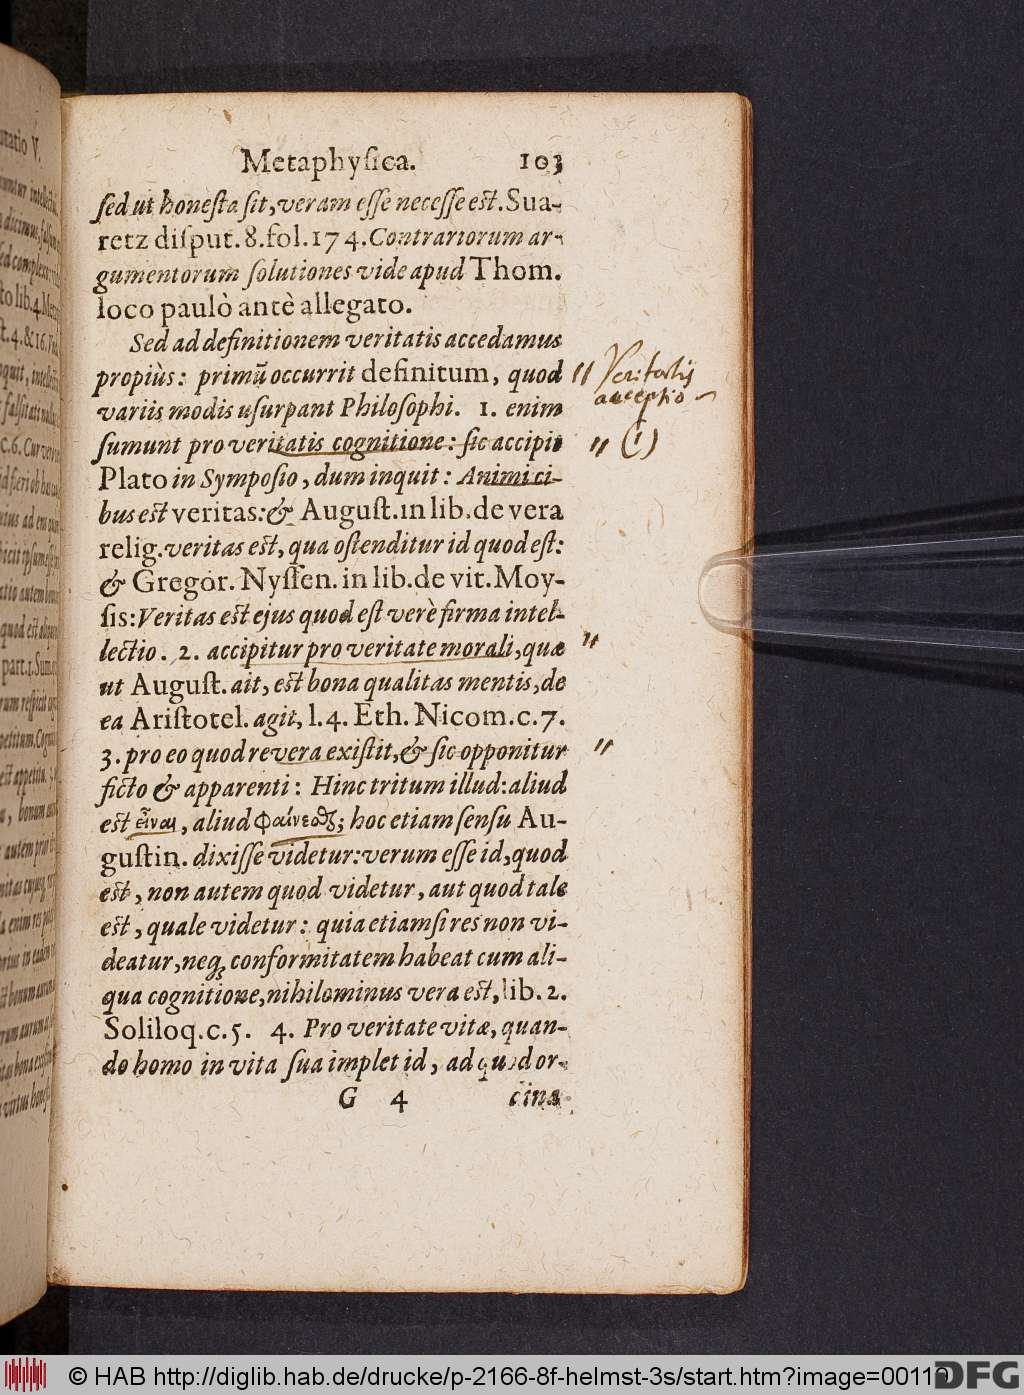 Metaphyſica. 103
ſed ut honeſta ſit, veram eſſe neceſſe eſt. Sua-
retz diſput. 8. fol. 174. Contrariorum ar-
gumentorum ſolutiones vide apud Thom.
loco paulò antè allegato.
Sed ad definitionem veritatis accedamus
propiùs: primū occurrit definitum, quod
variis modis uſurpant Philoſophi. 1. enim
ſumunt pro veritatis cognitione: ſic accipit
Plato in Sympoſio, dum inquit: Animi ci-
bus eſt veritas: & Auguſt. in lib. de vera
relig. veritas eſt, qua oſtenditur id quod eſt:
& Gregor. Nyſſen. in lib. de vit. Moy-
ſis: Veritas eſt ejus quod eſt verè firma intel-
lectio. 2. accipitur pro veritate morali, quæ
ut Auguſt. ait, eſt bona qualitas mentis, de
ea Ariſtotel. agit, l. 4. Eth. Nicom. c. 7.
3. pro eo quod revera exiſtit, & ſic opponitur
ficto & apparenti: Hinc tritum illud: aliud
eſt εἶναι, aliud φαίνεσθαι; hoc etiam ſenſu Au-
guſtin. dixiſſe videtur: verum eſſe id, quod
eſt, non autem quod videtur, aut quod tale
eſt, quale videtur: quia etiamſi res non vi-
deatur, neq; conformitatem habeat cum ali-
qua cognitione, nihilominus vera eſt, lib. 2.
Soliloq. c. 5. 4. Pro veritate vitæ, quan-
do homo in vita ſua implet id, ad quod or-
G 4 dina
" Veritatis
acceptio
" (1)
"
"
© HAB http://diglib.hab.de/drucke/p-2166-8f-helmst-3s/start.htm?image=00119
DFG